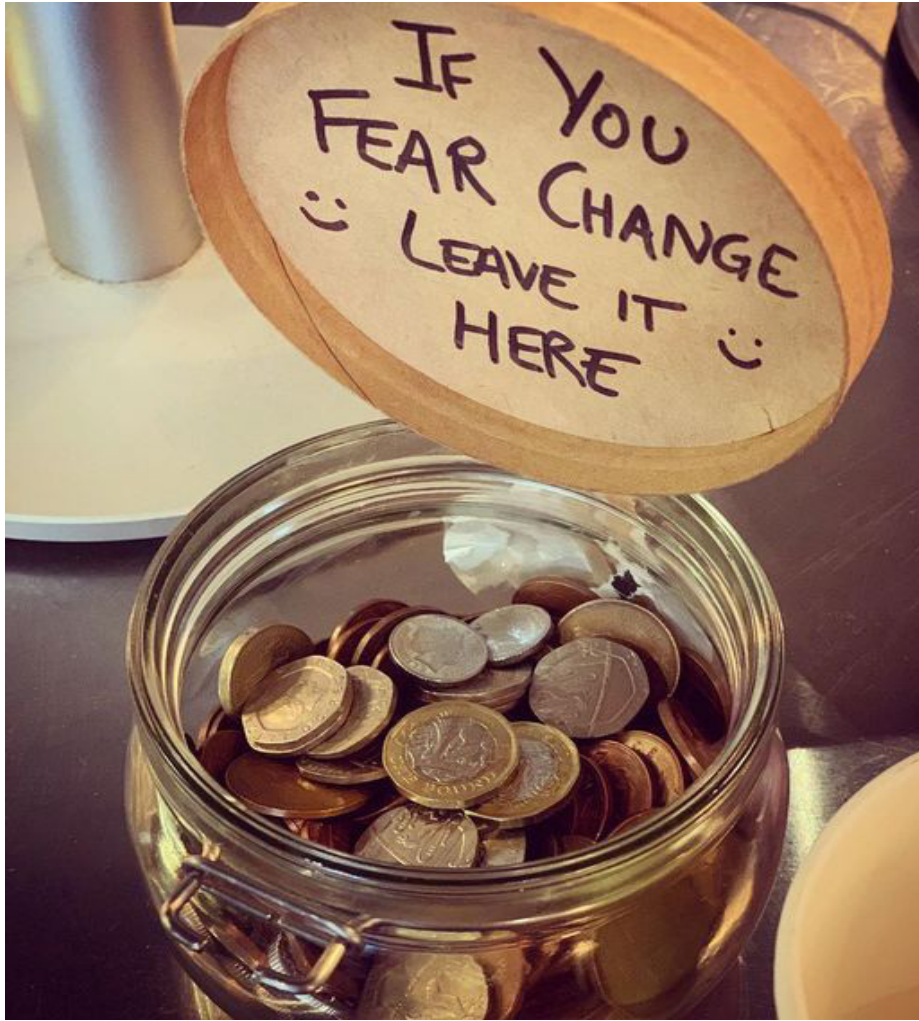 IF YOU
FEAR CHANGE
LEAVE IT
HERE